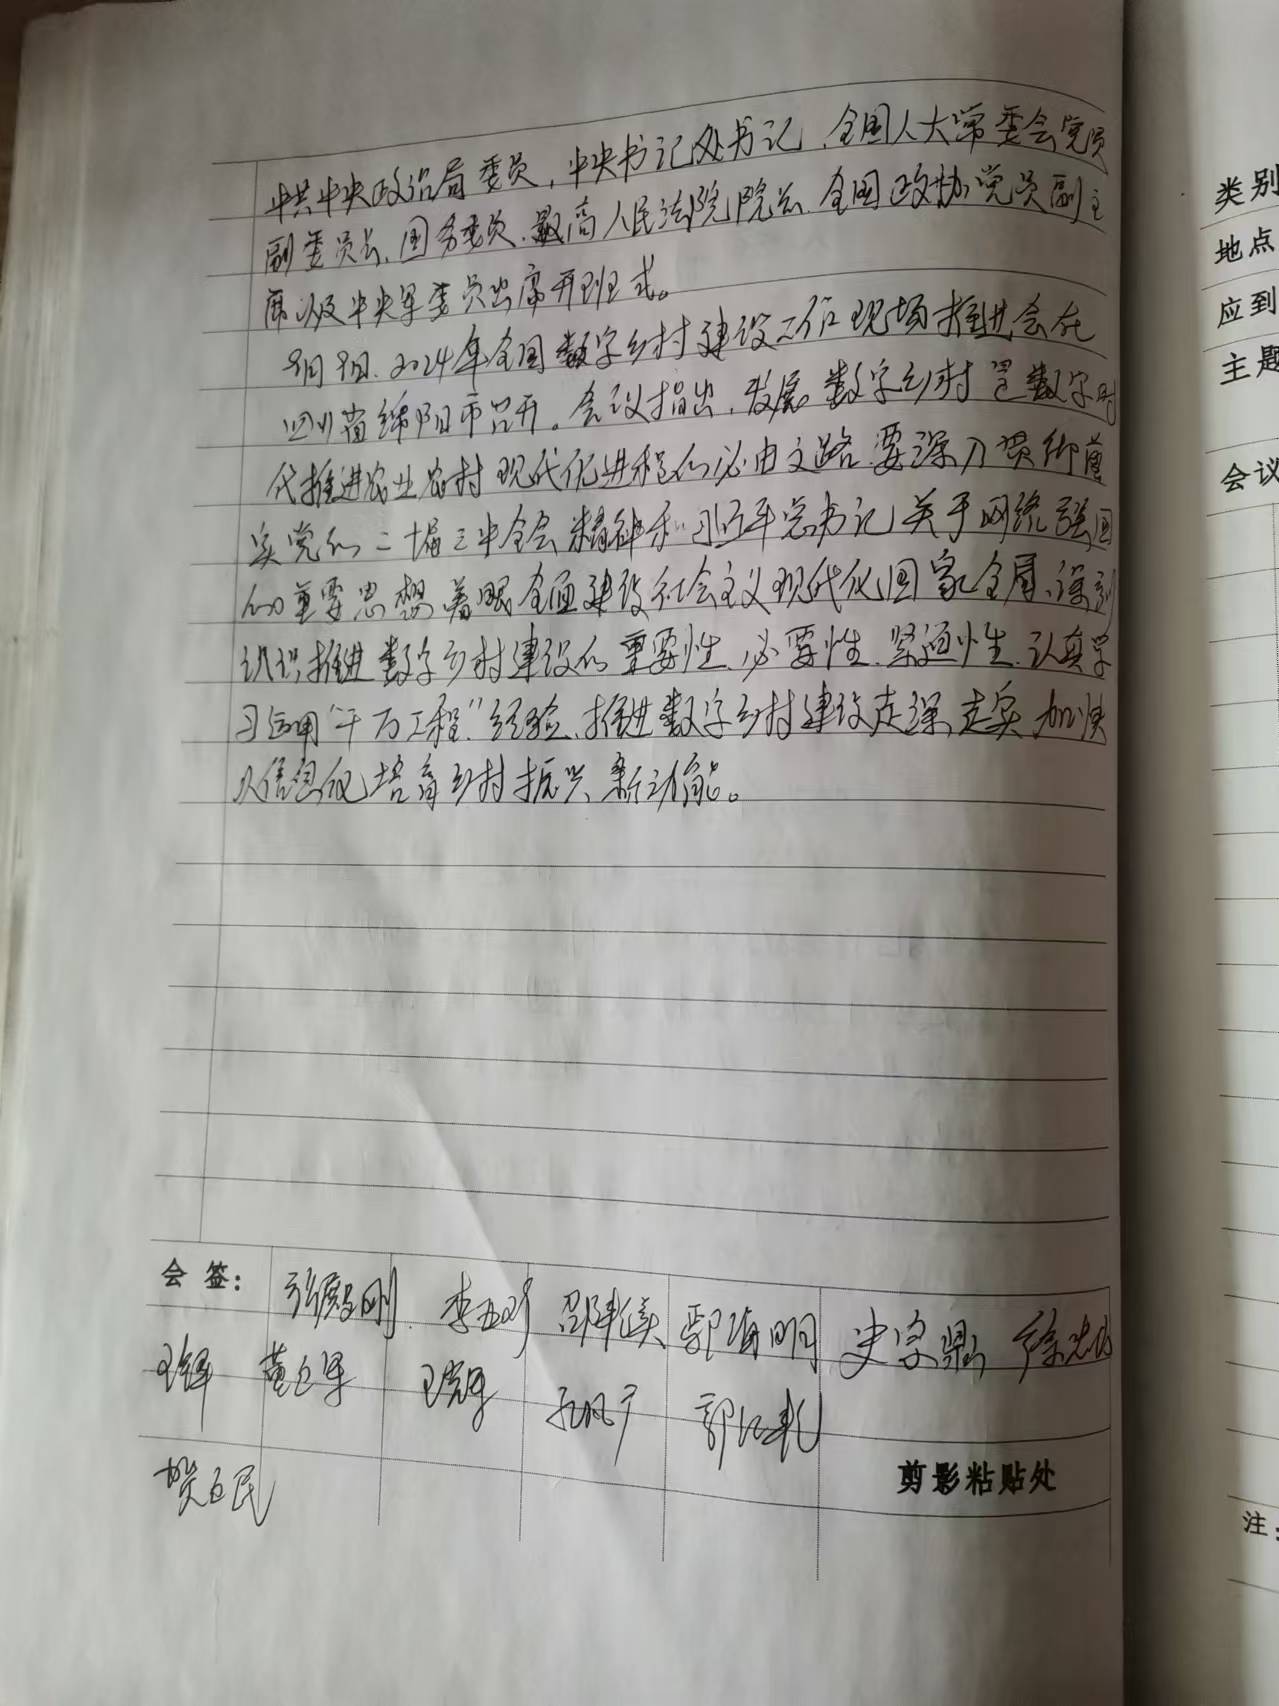 中共中央政治局委员,中央书记处书记、全国人大常委会党员
副委员长,国务委员、最高人民法院院长、全国政协党员副主
席以及中央军委委员出席开班式。
2024年全国数字乡村建设工作现场推进会在
四川省绵阳市召开。会议指出,发展数字乡村是数字时
代推进农业农村现代化进程的必由之路.要深刀贯彻落
实党的二十届三中全会精神和习近平总书记关于网络强国
的重要思想着眼全面建设社会主义现代化国家全局、深刻
认识推进数字乡村建设的重要性、必要性、紧迫性.认真学
习运用“千万工程”经验、推进数字乡村建设走深走实加快
以信息化培育乡村振兴新动能。
会签:
张殿刚 李 明 史宗鼎 徐
王锋 董 军 王 孔凡 郭
贺 民
剪影粘贴处
类别
地点
应到
主题
会议
注: